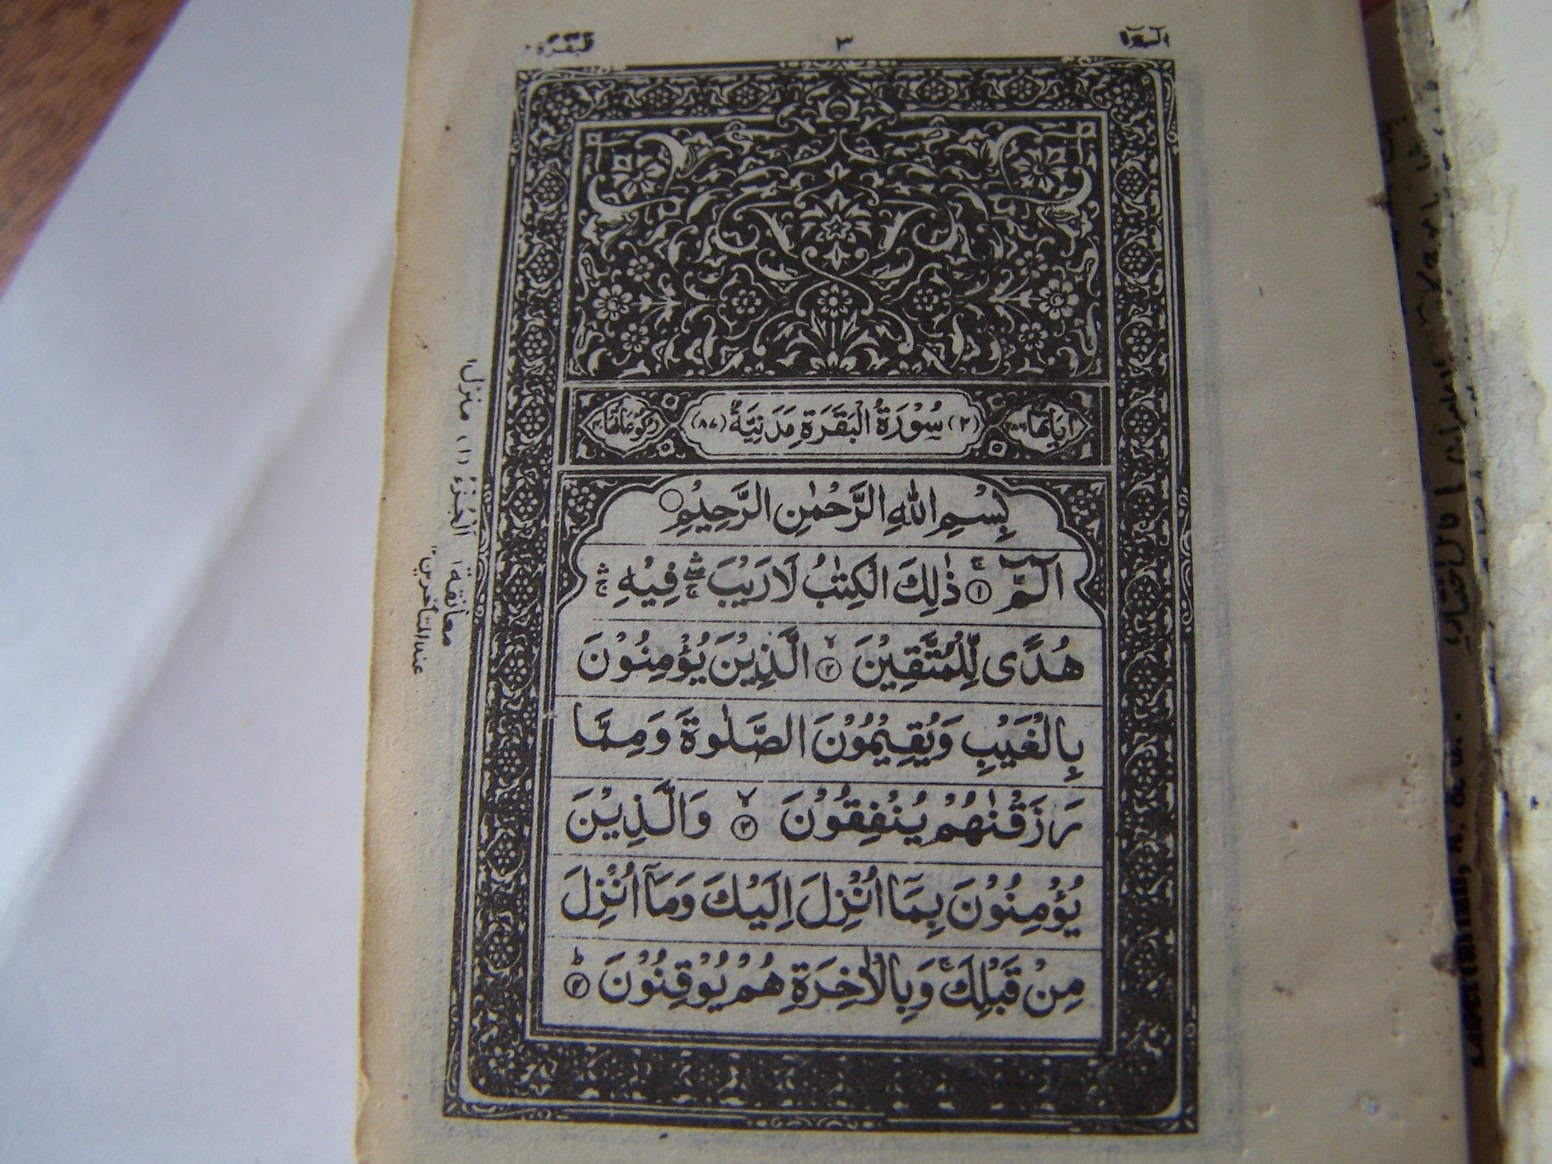 البقرة ٣ الٓمّٓ ١
اٰيَاتُهَا (٢) سُوْرَةُ الْبَقَرَةِ مَدَنِيَّةٌ (٨٧) رُكُوْعَاتُهَا
بِسْمِ اللّٰهِ الرَّحْمٰنِ الرَّحِيْمِ ○
الٓمّٓ ۚ ① ذٰلِكَ الْكِتٰبُ لَا رَيْبَ ۛۚ فِيْهِ ۛۚ
هُدًى لِّلْمُتَّقِيْنَ ② ۙ الَّذِيْنَ يُؤْمِنُوْنَ
بِالْغَيْبِ وَيُقِيْمُوْنَ الصَّلٰوةَ وَمِمَّا
رَزَقْنٰهُمْ يُنْفِقُوْنَ ③ ۙ وَالَّذِيْنَ
يُؤْمِنُوْنَ بِمَآ اُنْزِلَ اِلَيْكَ وَمَآ اُنْزِلَ
مِنْ قَبْلِكَ ۚ وَبِالْاٰخِرَةِ هُمْ يُوْقِنُوْنَ ④ ؕ
منزل ١ الجزء (١)
معانقة ١
عند المتأخرين ١٢